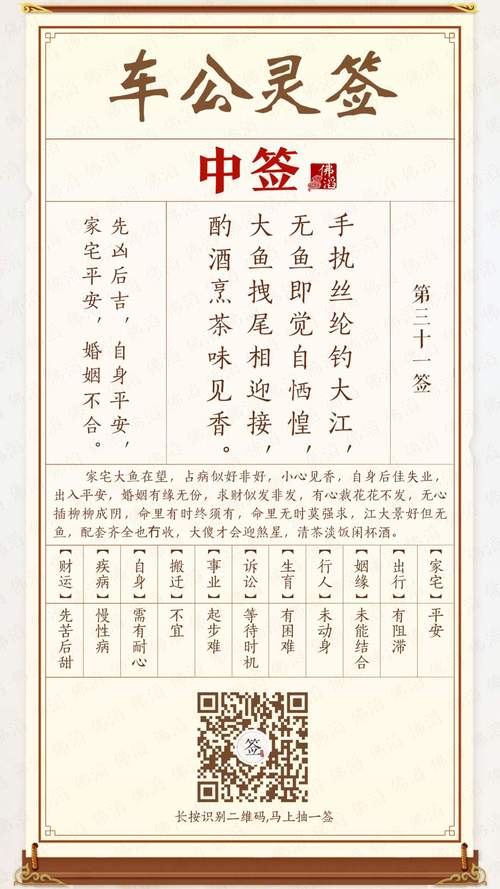 车公灵签
中签
佛滔
第三十一签
手执丝纶钓大江，
无鱼即觉自恓惶，
大鱼拽尾相迎接，
酌酒烹茶味见香。
先凶后吉，自身平安，
家宅平安，婚姻不合。
家宅大鱼在望，占病似好非好，小心见香，自身后佳失业，
出入平安，婚姻有缘无份，求财似发非发，有心栽花花不发，无心
插柳柳成阴，命里有时终须有，命里无时莫强求，江大景好但无
鱼，配套齐全也冇收，大傻才会迎煞星，清茶淡饭闲杯酒。
【家宅】平安
【出行】有阻滞
【姻缘】未能结合
【行人】未动身
【生育】有困难
【诉讼】等待时机
【事业】起步难
【搬迁】不宜
【自身】需有耐心
【疾病】慢性病
【财运】先苦后甜
签
长按识别二维码,马上抽一签